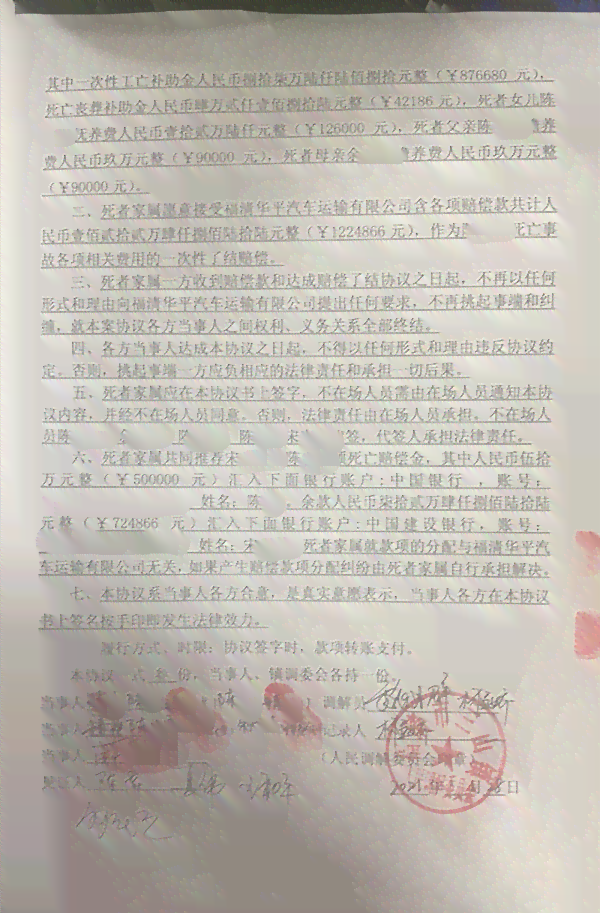 其中一次性工亡补助金人民币捌拾柒万陆仟陆佰捌拾元整（￥876680 元），
死亡丧葬补助金人民币肆万贰仟壹佰捌拾陆元整（￥42186 元），死者女儿陈
抚养费人民币壹拾贰万陆仟元整（￥126000 元），死者父亲陈 养
费人民币玖万元整（￥90000 元），死者母亲余 养费人民币玖万元整
（￥90000 元）。
二、死者家属愿意接受福清华平汽车运输有限公司含各项赔偿款共计人
民币壹佰贰拾贰万肆仟捌佰陆拾陆元整（￥1224866 元），作为 死亡事
故各项相关费用的一次性了结赔偿。
三、死者家属一方收到赔偿款和达成赔偿了结协议之日起，不再以任何
形式和理由向福清华平汽车运输有限公司提出任何要求，不再挑起事端和纠
缠，就本案协议各方当事人之间权利、义务关系全部终结。
四、各方当事人达成本协议之日起，不得以任何形式和理由违反协议约
定。否则，挑起事端一方应负相应的法律责任和承担一切后果。
五、死者家属应在本协议书上签字，不在场人员需由在场人员通知本协
议内容，并经不在场人员同意。否则，法律责任由在场人员承担。不在场人
员陈 余 陈 陈 宋 签，代签人承担法律责任。
六、死者家属共同推荐宋 陈 领死亡赔偿金，其中人民币伍拾
万元整（￥500000 元）汇入下面银行账户：中国银行 ，账号：
姓名：陈 。余款人民币柒拾贰万肆仟捌佰陆拾陆
元整（￥724866 元）汇入下面银行账户：中国建设银行，账号：
姓名：宋 死者家属就款项的分配与福清华平汽
车运输有限公司无关，如果产生赔偿款项分配纠纷由死者家属自行承担解决。
七、本协议系当事人各方合意，是真实意愿表示，当事人各方在本协议
书上签名按手印即发生法律效力。
履行方式、时限：协议签字时，款项转账支付。
本协议一式叁份，当事人、镇调委会各持一份。
当事人 调解员
当事人 记录人
当事人 （人民调解委员会印章）
见证人 2021 年 月 日